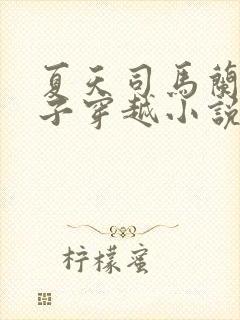 夏天司馬蘭
子穿越小說
柠檬蜜